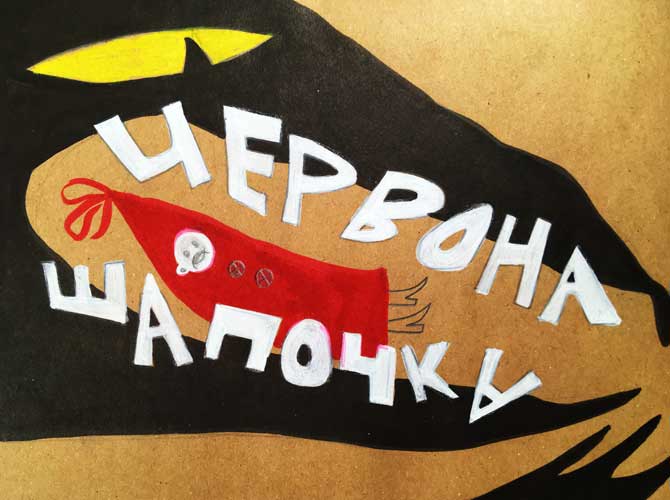 ЧЕРВОНА
ШАПОЧКА